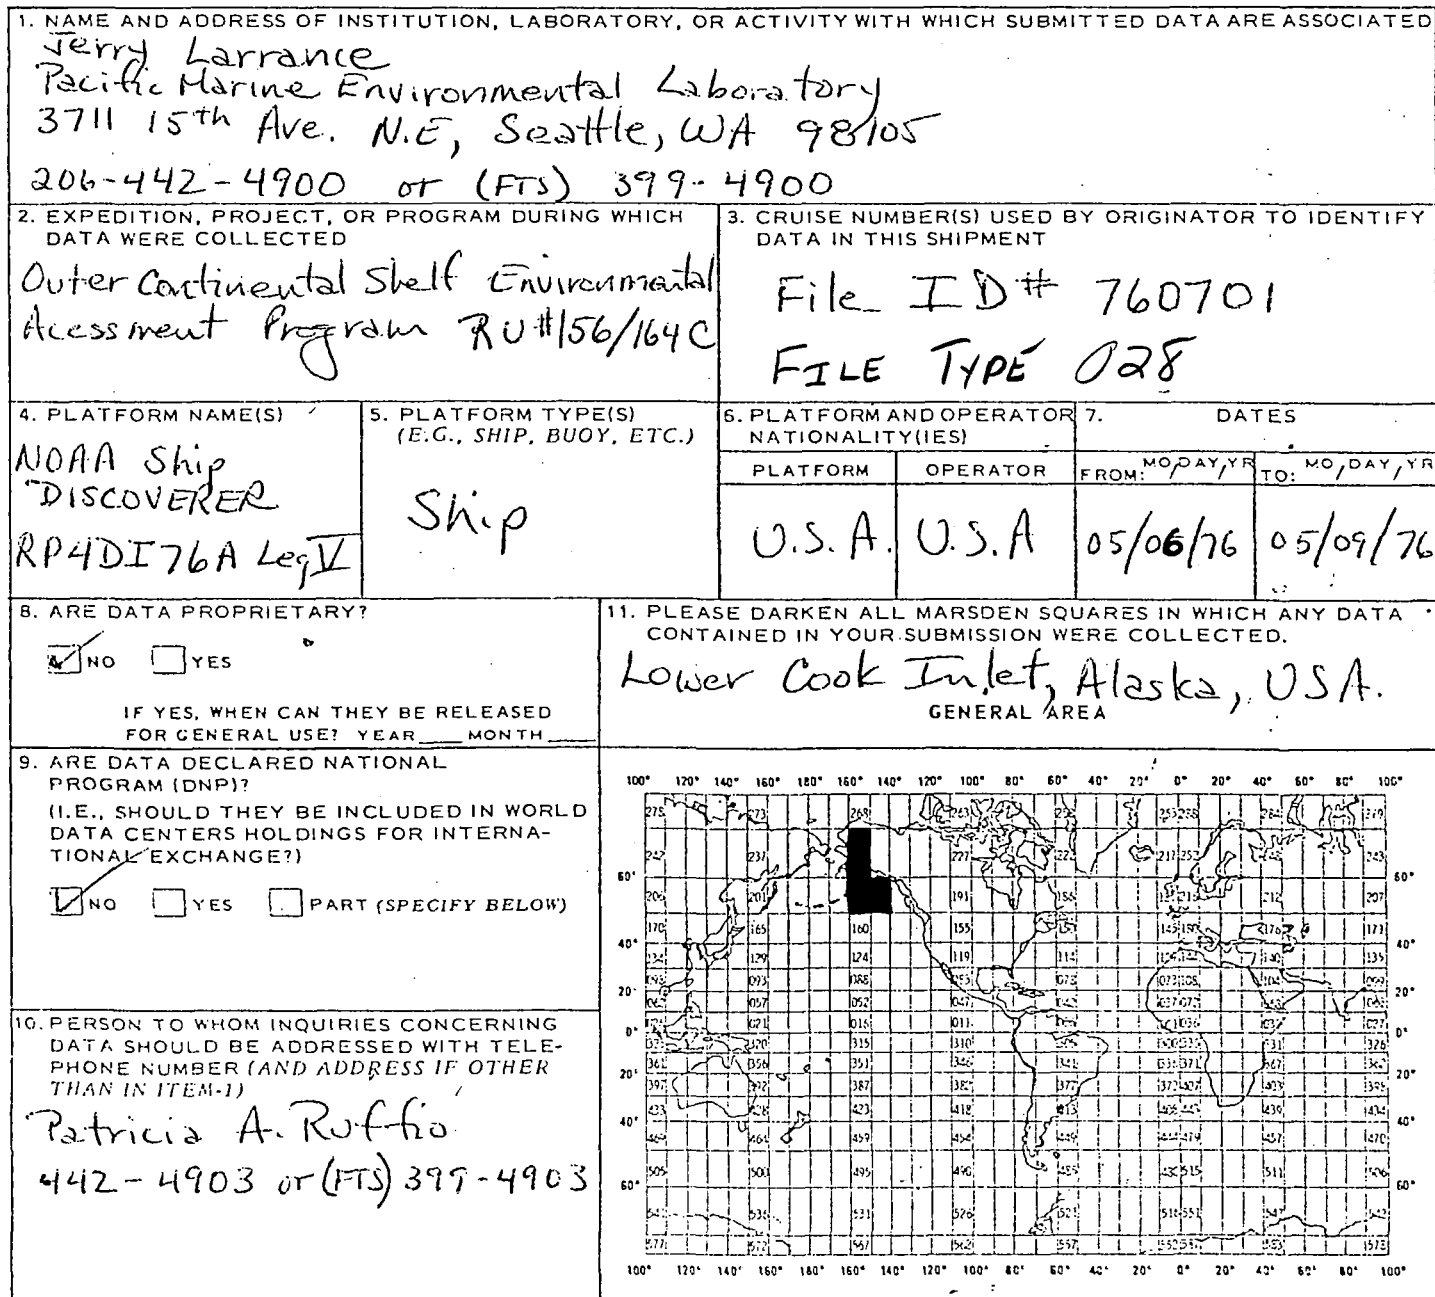 1. NAME AND ADDRESS OF INSTITUTION, LABORATORY, OR ACTIVITY WITH WHICH SUBMITTED DATA ARE ASSOCIATED
Jerry Larrance
Pacific Marine Environmental Laboratory
3711 15th Ave. N.E, Seattle, WA 98105
206-442-4900 or (FTS) 399-4900
2. EXPEDITION, PROJECT, OR PROGRAM DURING WHICH
DATA WERE COLLECTED
Outer Continental Shelf Environmental
Acessment Program RU#156/164C
3. CRUISE NUMBER(S) USED BY ORIGINATOR TO IDENTIFY
DATA IN THIS SHIPMENT
File ID# 760701
FILE TYPE 028
4. PLATFORM NAME(S)
NOAA Ship
DISCOVERER
RP4DI76A Leg V
5. PLATFORM TYPE(S)
(E.G., SHIP, BUOY, ETC.)
Ship
6. PLATFORM AND OPERATOR
NATIONALITY(IES)
PLATFORM OPERATOR
U.S.A. U.S.A
7. DATES
FROM: MO/DAY/YR TO: MO/DAY/YR
05/06/76 05/09/76
8. ARE DATA PROPRIETARY?
NO YES
IF YES, WHEN CAN THEY BE RELEASED
FOR GENERAL USE? YEAR____ MONTH____
9. ARE DATA DECLARED NATIONAL
PROGRAM (DNP)?
(I.E., SHOULD THEY BE INCLUDED IN WORLD
DATA CENTERS HOLDINGS FOR INTERNA-
TIONAL EXCHANGE?)
NO YES PART (SPECIFY BELOW)
10. PERSON TO WHOM INQUIRIES CONCERNING
DATA SHOULD BE ADDRESSED WITH TELE-
PHONE NUMBER (AND ADDRESS IF OTHER
THAN IN ITEM-1)
Patricia A. Ruffio
442-4903 or (FTS) 399-4903
11. PLEASE DARKEN ALL MARSDEN SQUARES IN WHICH ANY DATA
CONTAINED IN YOUR SUBMISSION WERE COLLECTED.
Lower Cook Inlet, Alaska, USA.
GENERAL AREA
100° 120° 140° 160° 180° 160° 140° 120° 100° 80° 60° 40° 20° 0° 20° 40° 60° 80° 100°
273 268 263
242 237 227 243
60° 206 201 191 212 207 60°
170 165 160 155 171
40° 40°
134 129 124 119 114 140 135
093 088 099
20° 057 052 047 20°
0° 021 016 011 027 0°
315 310 326
361 356 351 346 341
20° 397 392 387 382 377 403 398 20°
433 428 423 418 413 439 434
40° 40°
469 464 459 454 449 470
505 500 495 490 485 511 506
60° 60°
531 526
577 572 567 562 557 578
100° 120° 140° 160° 180° 160° 140° 120° 100° 80° 60° 40° 20° 0° 20° 40° 60° 80° 100°